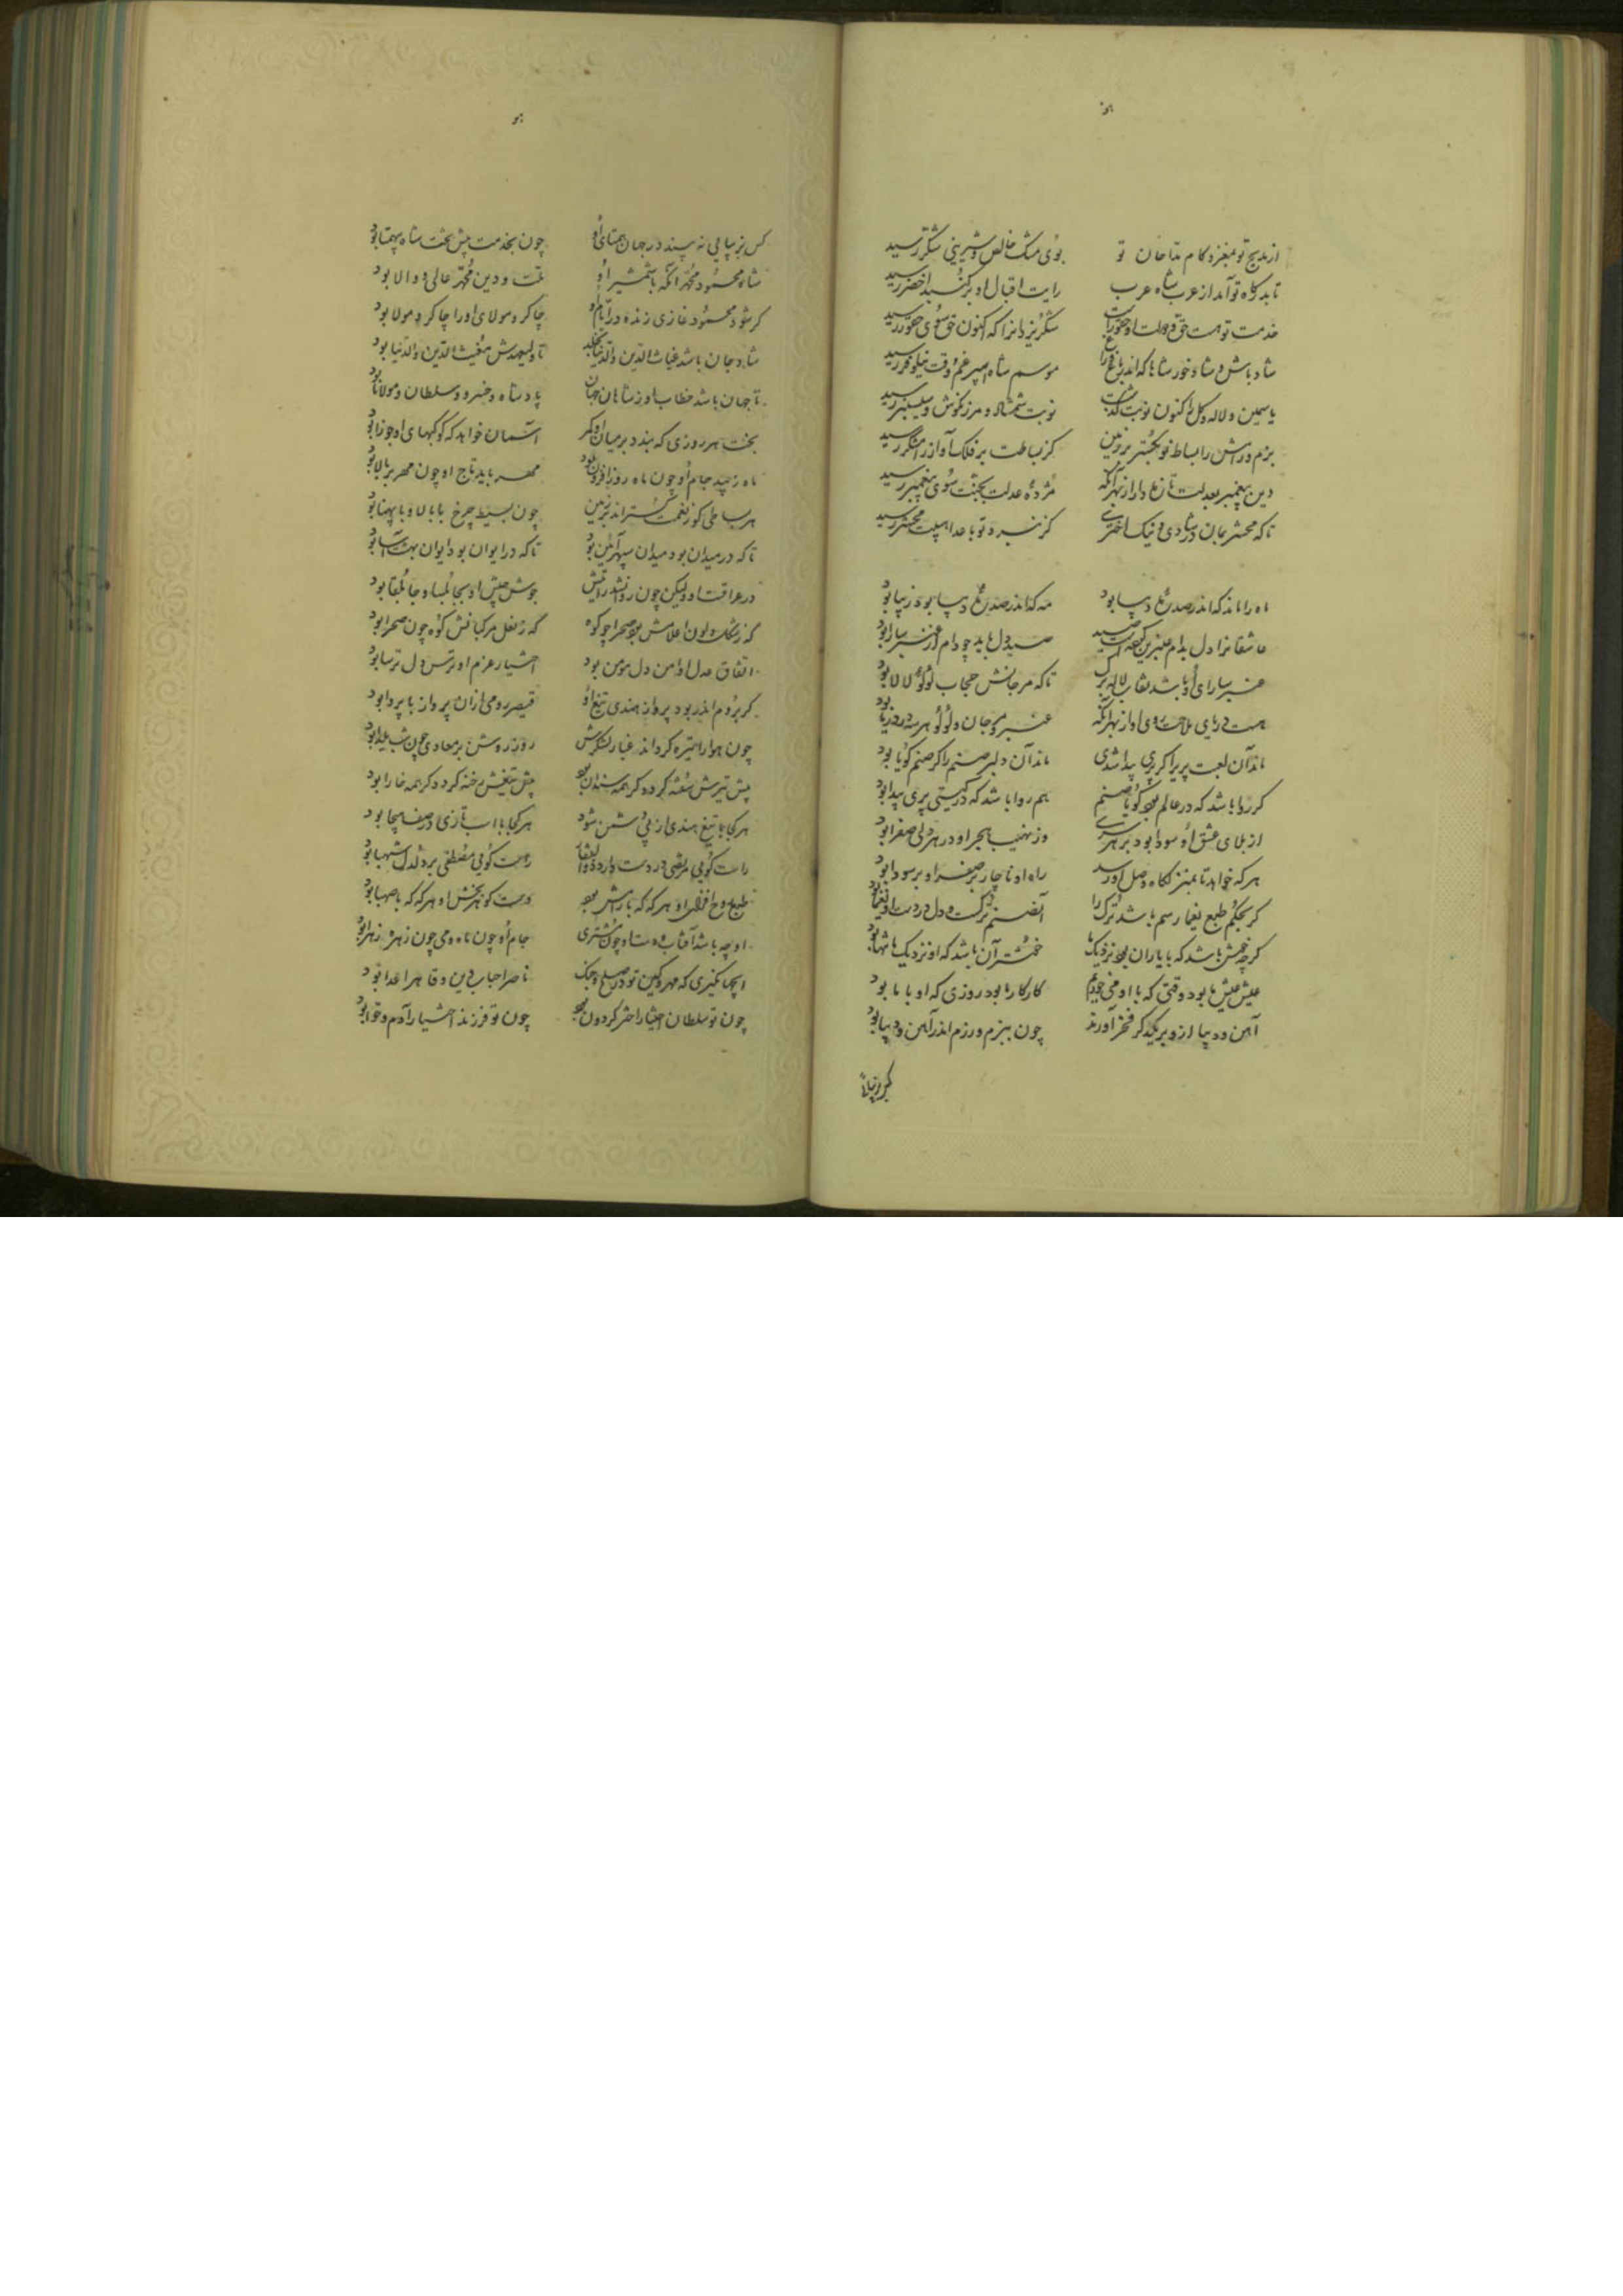 از مدیح تو بمغز و کام مداحان تو بوی مشک خالص و شیرینی شکر رسید
تا بدرگاه تو آمد از عرب شاه عرب رایت اقبال او بر گنبد اخضر رسید
خدمت تو هست حق و دولت او حقور شکر یزدانرا که اکنون حق سوی حقور رسید
شاد باش و شاد خور شاها که اندر باغ موسم شاه اسپرغم وقت نیلوفر رسید
یاسمین و لاله و گل را کنون نوبت گذشت نوبت شمشاد و مرزنگوش و سیسنبر رسید
بزم و رامش را بساط نو بگستر بر زمین کز بساطت بر فلک آواز رامشگر رسید
دین پیغمبر بعدلت تازه دار از بهر آنکه مژدهٔ عدلت بجنت سوی پیغمبر رسید
تا که محشر بمان در شادی و نیک اختری
ماه را ماند که اندر صدرهٔ دیبا بود مه که اندر صدرهٔ دیبا بود زیبا بود
عاشقانرا دل بدام عنبرین صید دل باید چو دام از عنبر سارا بود
عنبر سارای او باشد نقاب لاله برگ تا که مرجانش حجاب لؤلؤ لالا بود
هست دریای ملاحت روی او از بهر آنکه عنبر و مرجان و لؤلؤ هر سه در دریا بود
ماند آن لعبت پریرا گر پری پیدا شدی ماند آن دلبر صنم را گر صنم گویا بود
گر روا باشد که در عالم بود گویا صنم هم روا باشد که در گیتی پری پیدا بود
از بلای عشق او سودا بود بر هر سری وز نهیب هجر او در هر دلی صفرا بود
هر که خواهد تا بمنزلگاه وصل او رسد راه او ناچار بر صفرا و بر سودا بود
گر بحکم طبع یغما رسم باشد ترک را آنصنم ترکست و دل در دست او یغما بود
گر چه خوش باشد که با یاران بود نزدیک ما خوشتر آن باشد که او نزدیک ما تنها بود
عیش عیش ما بود وقتی که با او می خوریم کار کار ما بود روزی که او با ما بود
آهن و دیبا ازو بر یکدگر فخر آورند چون ببزم و رزم اندر آهن و دیبا بود
کس بزیبایی نه بیند در جهان همتای او چون بخدمت پیش تخت شاه بیهمتا بود
شاه محمود محمد آنکه با شمشیر او ملت و دین محمد عالی و والا بود
گر شود محمود غازی زنده در ایام او چاکر و مولای او را چاکر و مولا بود
شاد جان باشد غیاث الدین والدنیا بخلد تا ولیعهدش مغیث الدین والدنیا بود
تا جهان باشد خطاب او ز شاهان جهان پادشاه و خسرو و سلطان و مولانا بود
بخت هر روزی که بندد بر میان او کمر آسمان خواهد که کوکبهای او جوزا بود
ماه زیبد جام او چون ماه روز افزون بود مهر باید تاج او چون مهر بر بالا بود
هر بساطی کو ز نعمت گستراند بر زمین چون بسیط چرخ با بالا و با پهنا بود
تا که در میدان بود میدان سپهر آیین بود تا که در ایوان بود ایوان بهشت آسا بود
در عراقست او ولیکن چون روانشد رایتش جوش جیش او بجابلسا و جابلقا بود
گه ز شکل و لون اعلامش بود صحرا چو کوه گه ز نعل مرکبانش کوه چون صحرا بود
اتفاق عدل او امن دل مؤمن بود اختیار عزم او ترس دل ترسا بود
گر بروم اندر بود پرواز هندی تیغ او قیصر رومی ازان پرواز با پروا بود
چون هوا را تیره گرداند غبار لشکرش روز روشن بر معادی چون شب یلدا بود
پیش تیرش سفته گردد گر همه سندان بود پیش تیغش رخنه گردد گر همه خارا بود
هر کجا با تیغ هندی از پی دشمن شود هر کجا با اسب تازی در صف هیجا بود
راست گویی مرتضی در دست دارد ذوالفقار راست گویی مصطفی بر دلدل شهبا بود
او چه باشد آفتاب و دست او چون مشتری جام او چون ماه و می چون زهرهٔ زهرا بود
ای جهانگیری که مهر و کین تو در صلح و جنگ ناصر احباب دین و قاهر اعدا بود
چون تو سلطان اختیار اختر گردون بود چون تو فرزند اختیار آدم و حوا بود